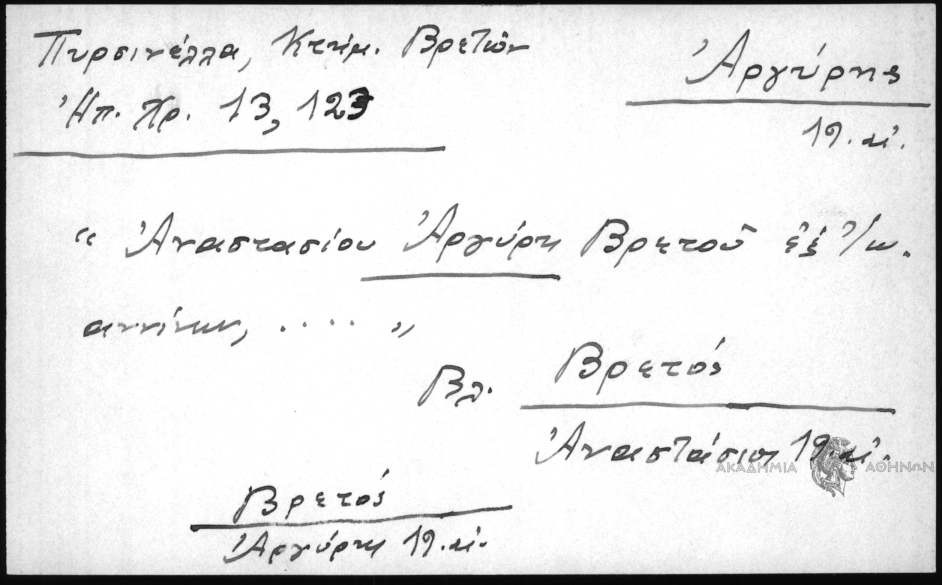 Πυρσινέλλα, Κτημ. Βρετῶν
Ἠπ. Χρ. 13, 123
Ἀργύρης
19. αἰ.
“ Ἀναστασίου Ἀργύρη Βρετοῦ ἐξ Ἰω.
αννίνων, ..... ”
Βλ. Βρετός
Ἀναστάσιος 19. αἰ.
ΑΚΑΔΗΜΙΑ ΑΘΗΝΩΝ
Βρετός
Ἀργύρη 19. αἰ.